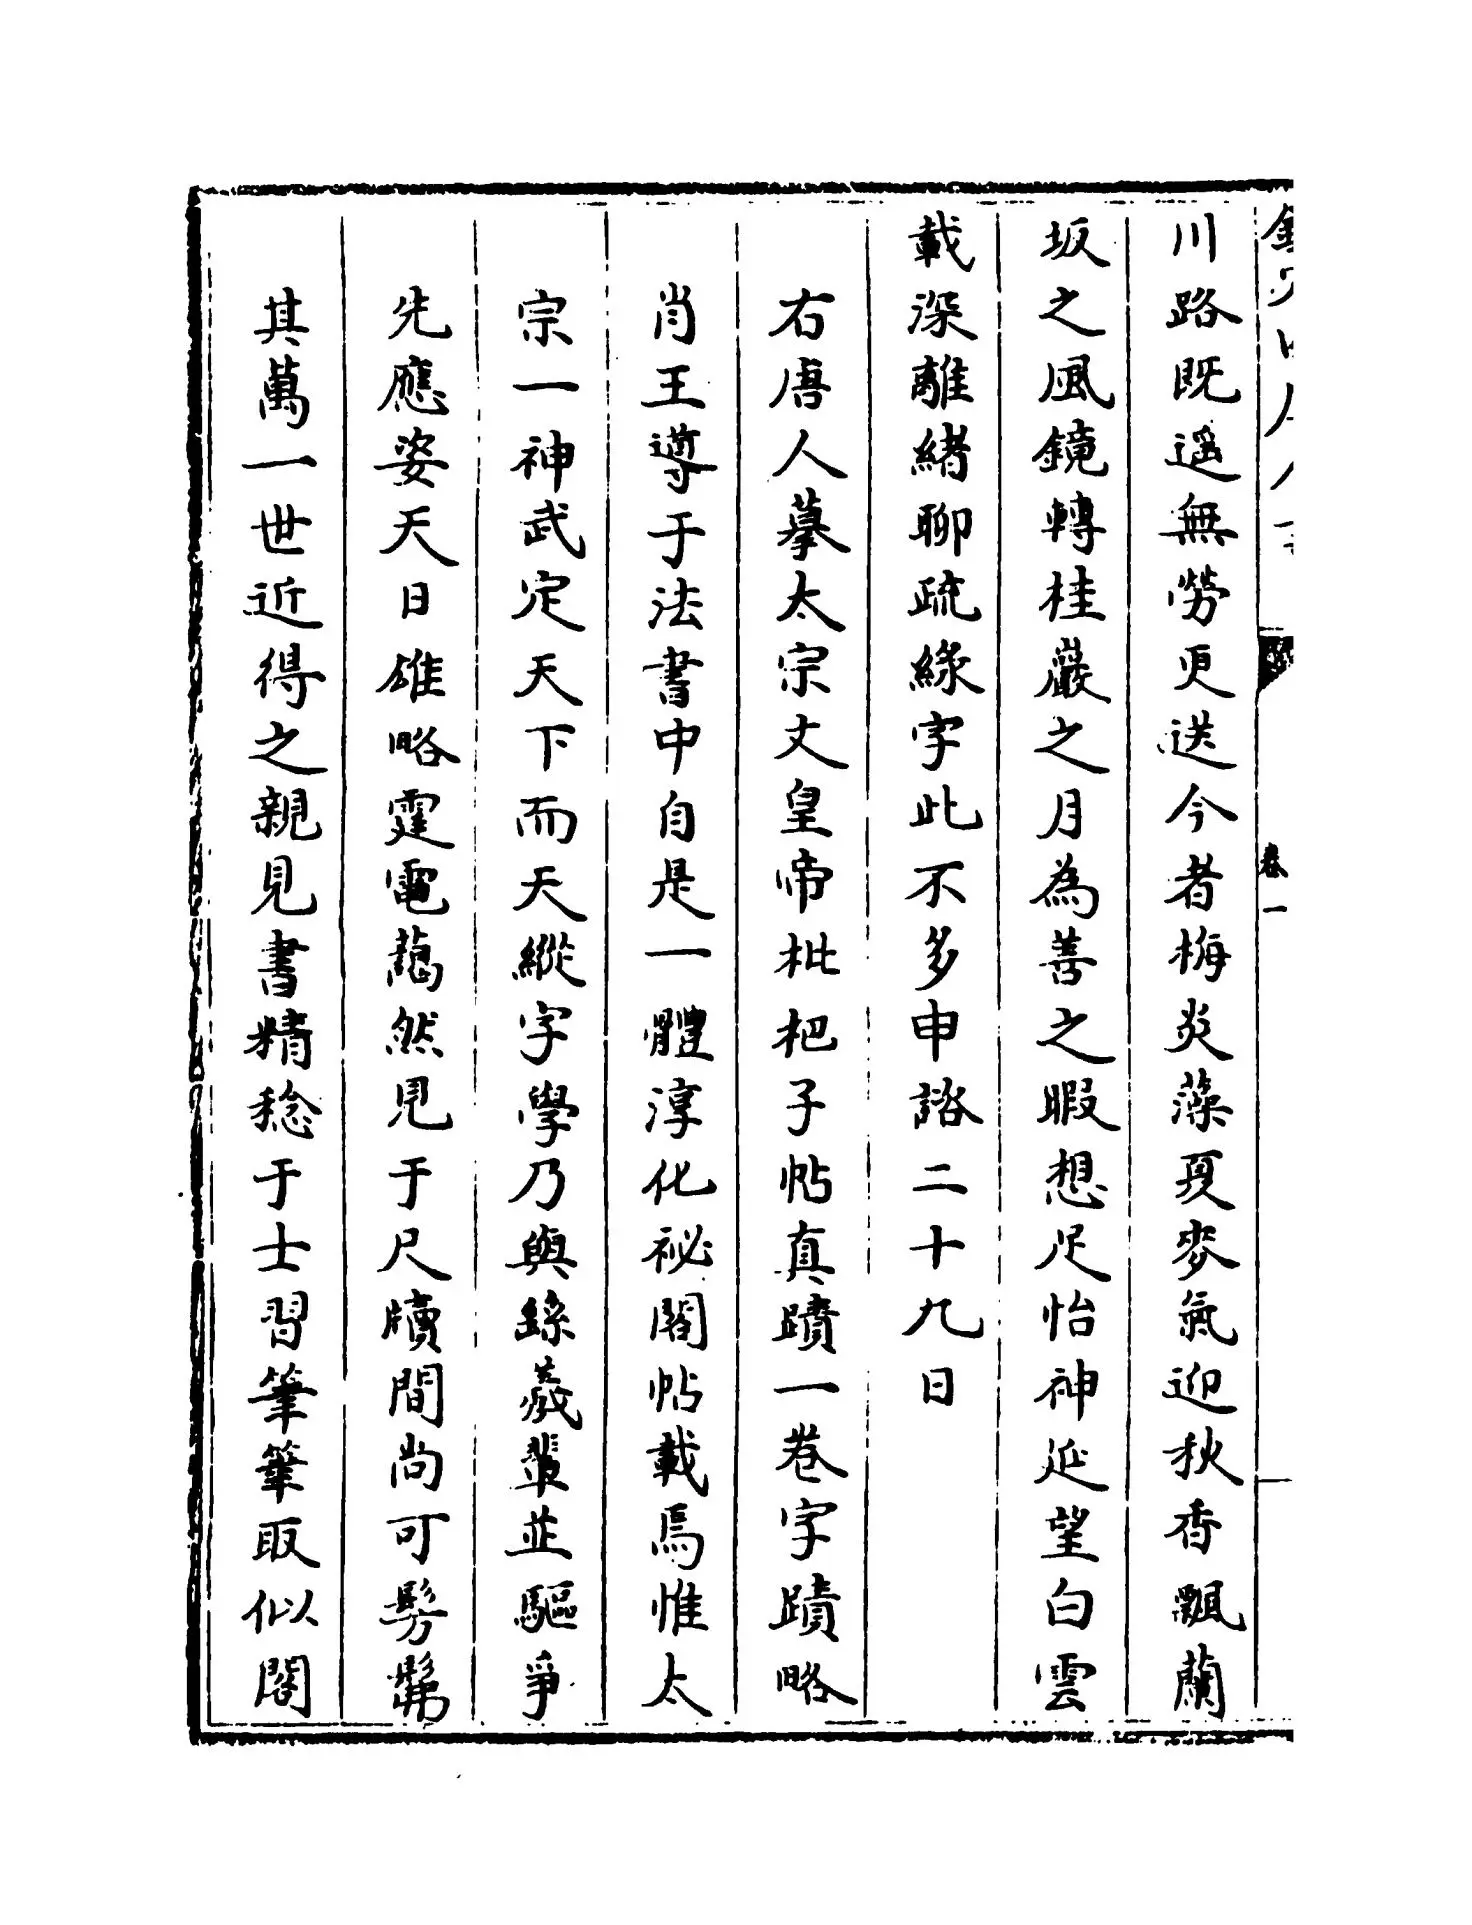 卷一
川路既遥無勞更送今者梅炎藻夏麥氣迎秋香飄蘭
坂之風鏡轉桂巖之月為善之暇想足怡神延望白雲
載深離緒聊疏緣字此不多申諮二十九日
右唐人摹太宗文皇帝枇杷子帖真蹟一卷字蹟略
肖王導于法書中自是一體淳化祕閣帖載焉惟太
宗一神武定天下而天縱字學乃與繇羲輩並驅爭
先應姿天日雄略霆電藹然見于尺牘間尚可髣髴
其萬一世近得之親見書精稔于士習筆筆取似閣